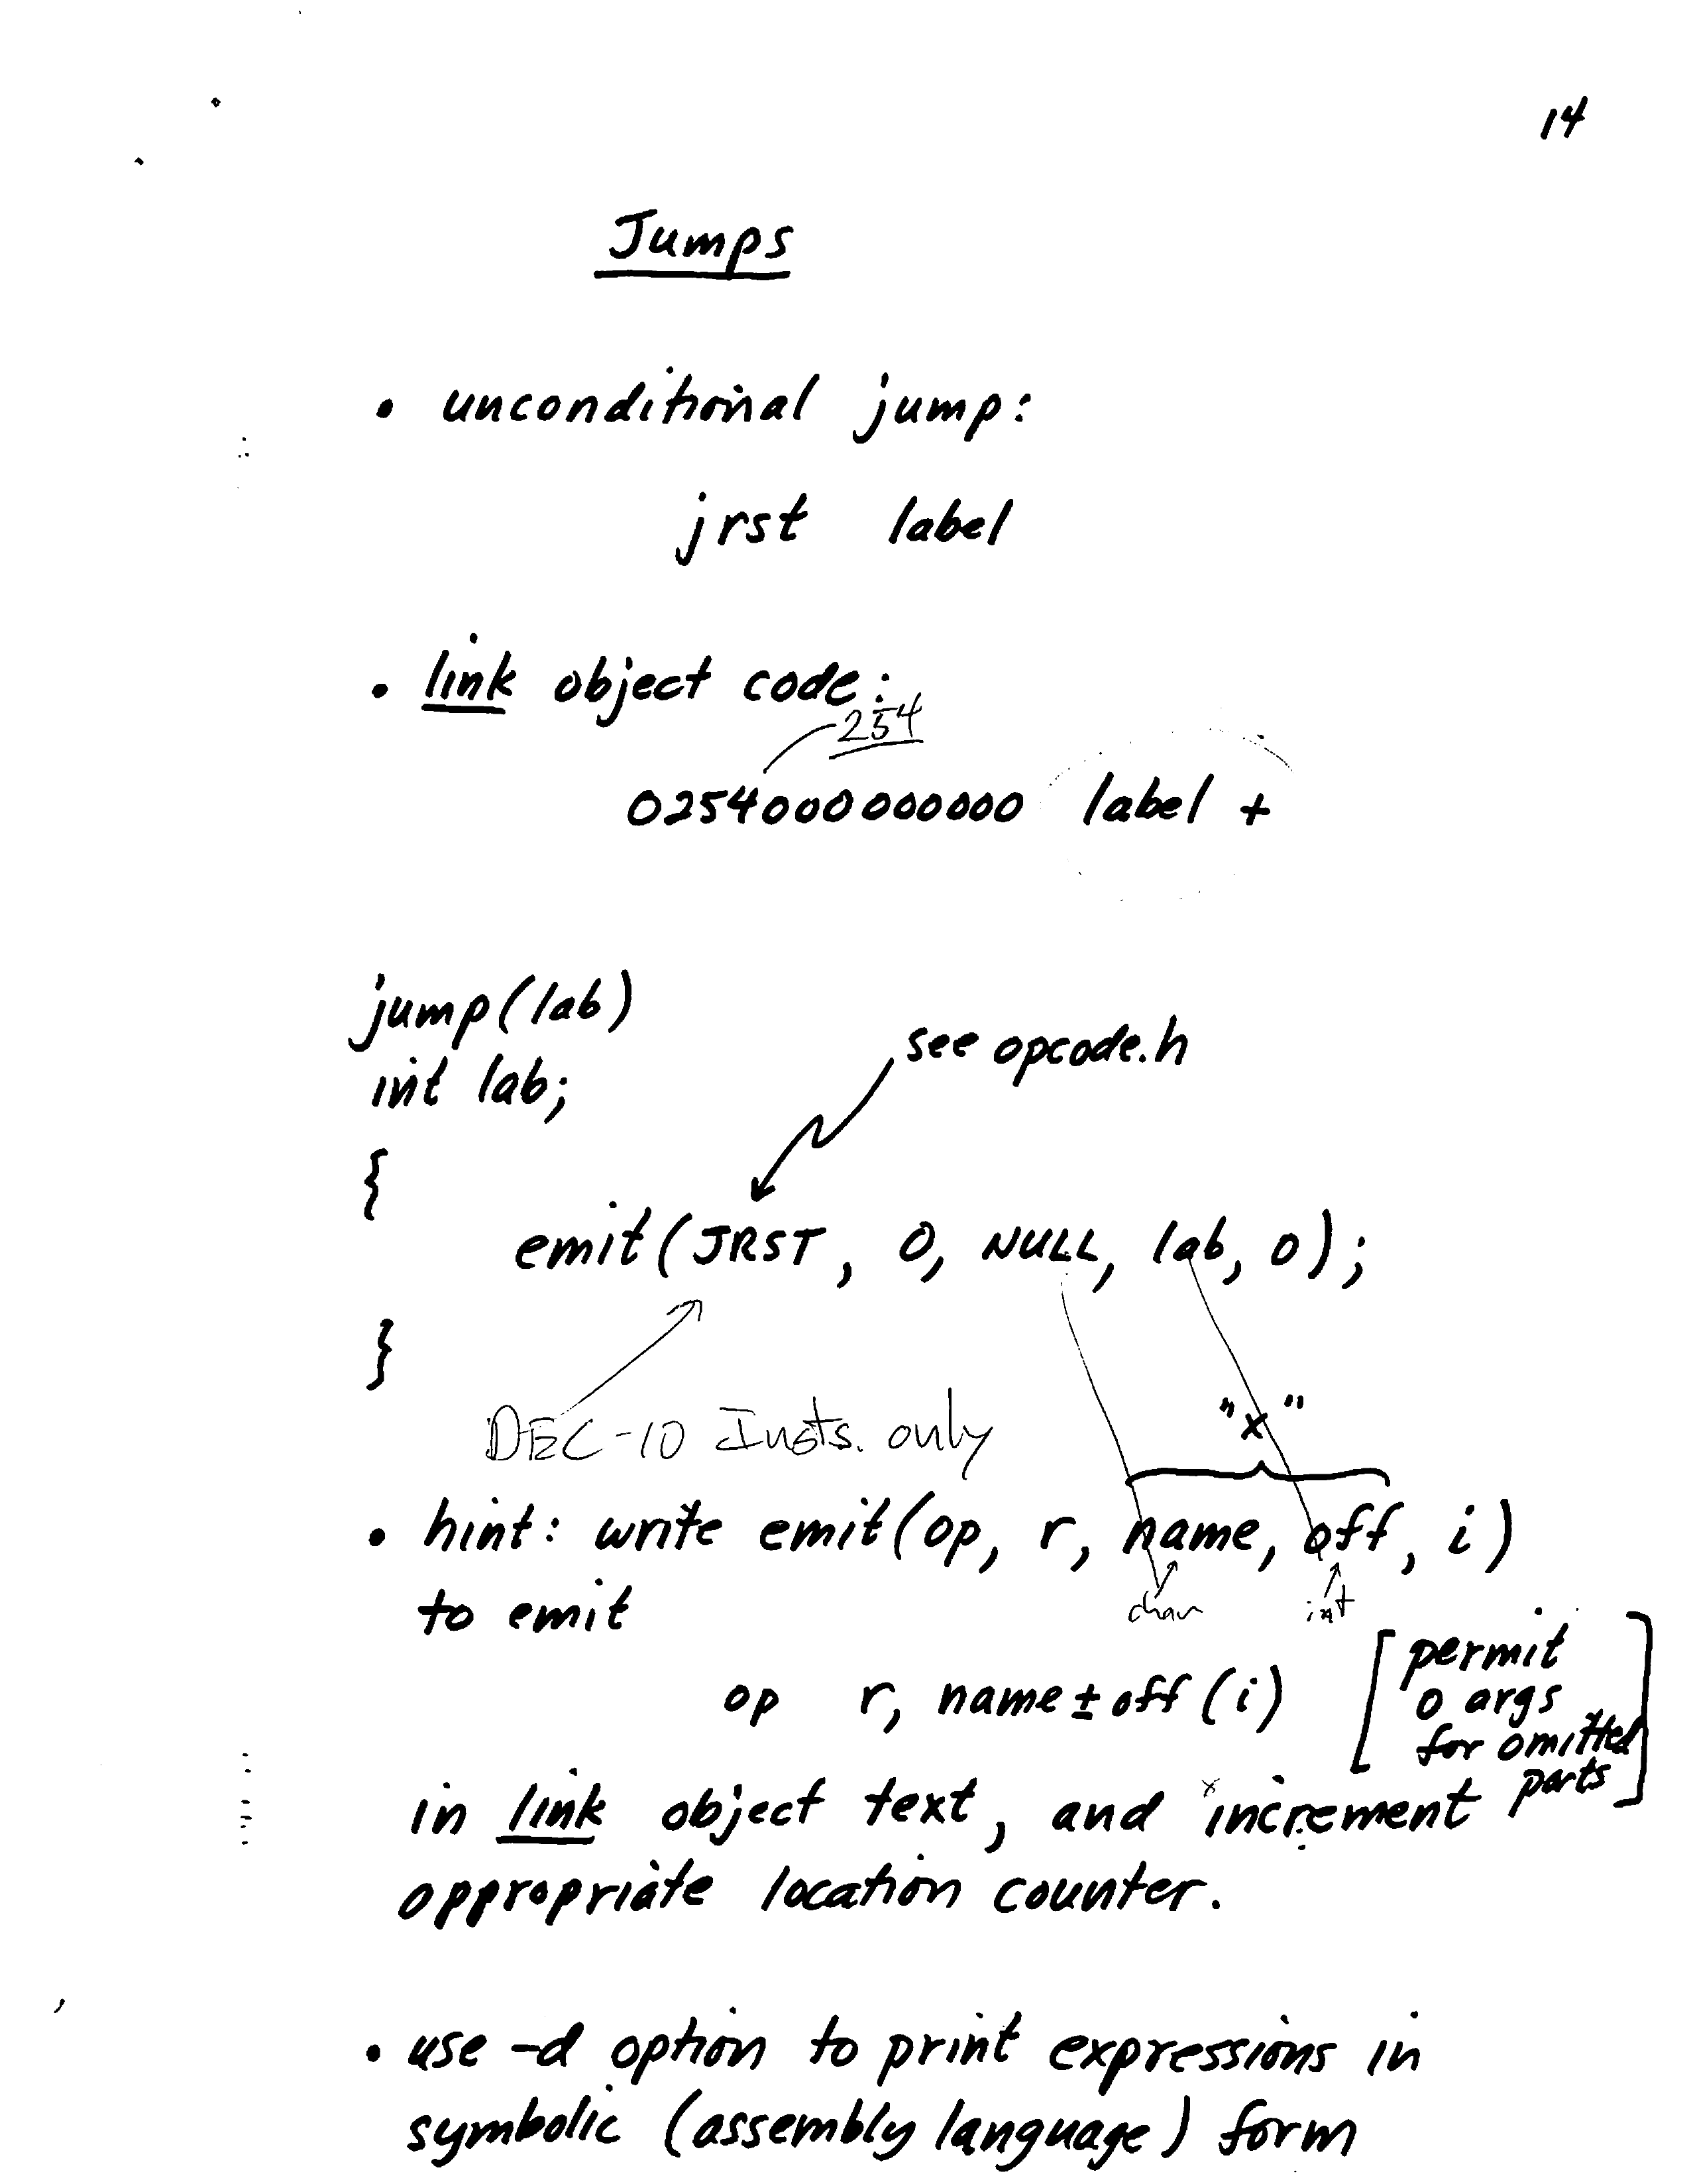 14
Jumps
• unconditional jump:
jrst label
• link object code:
254
0254000000000 label +
jump(lab)
int lab;
see opcode.h
{
emit(JRST, 0, NULL, lab, 0);
}
DEC-10 Insts. only
"x"
• hint: write emit(op, r, name, off, i)
char int
to emit
op r, name ± off (i) [permit
0 args
for omitted
parts]
in link object text, and increment
appropriate location counter.
• use -d option to print expressions in
symbolic (assembly language) form